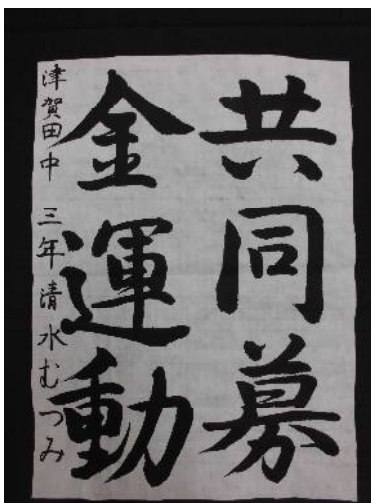 共同募
金運動
津賀田中 三年清水むつみ